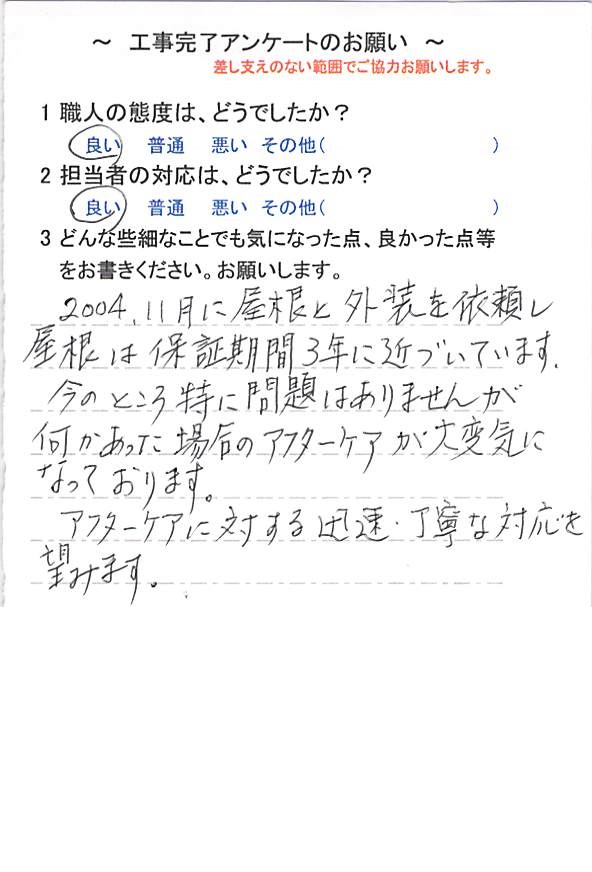 ～ 工事完了アンケートのお願い ～
差し支えのない範囲でご協力お願いします。
1 職人の態度は、どうでしたか？
良い 普通 悪い その他( )
2 担当者の対応は、どうでしたか？
良い 普通 悪い その他( )
3 どんな些細なことでも気になった点、良かった点等
をお書きください。お願いします。
2004.11月に屋根と外装を依頼し
屋根は保証期間3年に近づいています.
今のところ特に問題はありませんが
何かあった場合のアフターケアが大変気に
なっております。
アフターケアに対する迅速・丁寧な対応を
望みます。